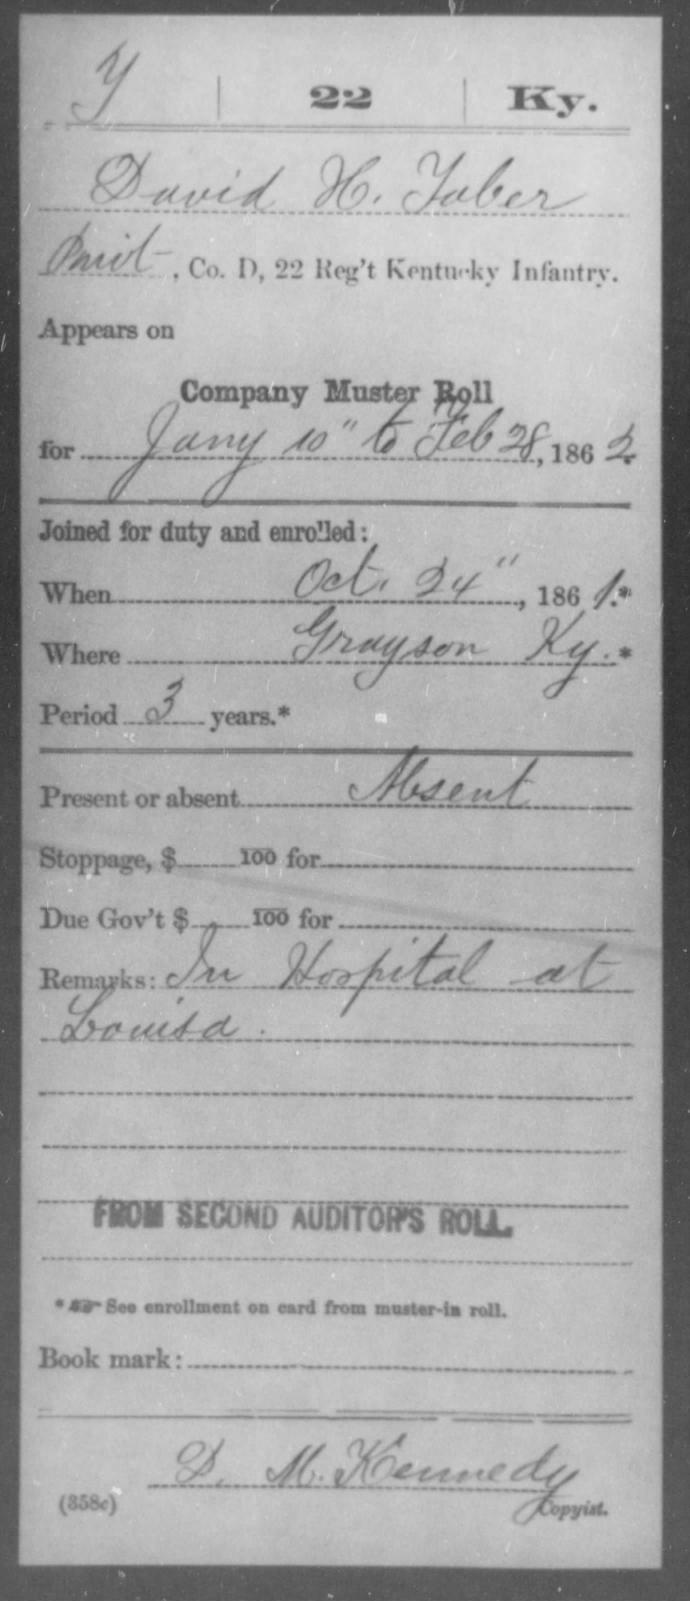 Y | 22 | Ky.
David H. Yaber
Privt, Co. D, 22 Reg't Kentucky Infantry.
Appears on
Company Muster Roll
for Jany 10" to Feb 28, 1862.
Joined for duty and enrolled:
When Oct. 24", 1861.*
Where Grayson Ky.*
Period 3 years.*
Present or absent Absent
Stoppage, $ 100 for
Due Gov't $ 100 for
Remarks: In Hospital at
Louisa.
FROM SECOND AUDITOR'S ROLL.
* See enrollment on card from muster-in roll.
Book mark:
D. M. Kennedy
(358c) Copyist.